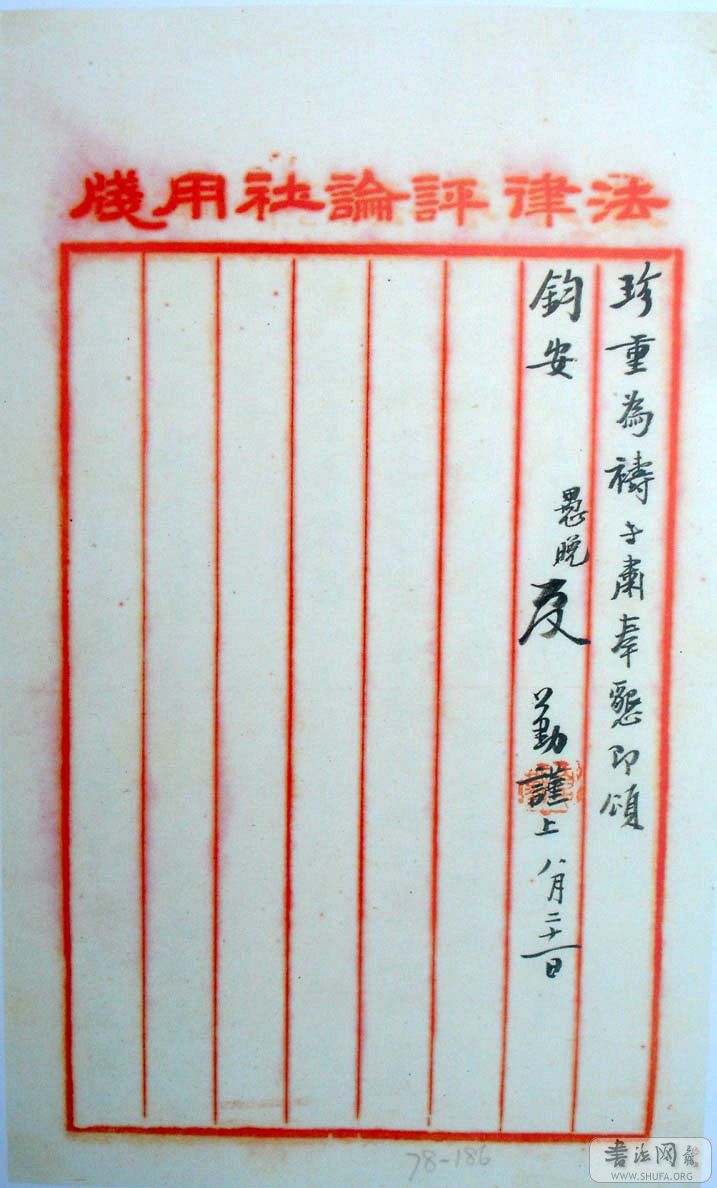 法律評論社用牋
珍重為禱专肅奉懇即頌
鈞安
愚晚 夏 勤 謹上 八月二十一日
78-186
书法网
WWW.SHUFA.ORG